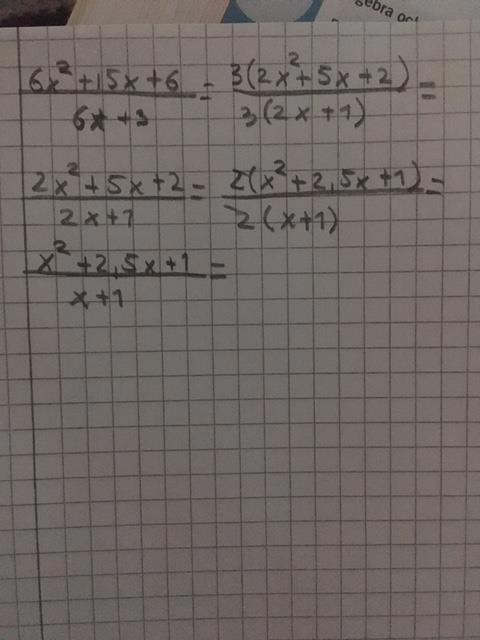 ebra oc
6x² + 15x + 6 / 6x + 3 = 3(2x² + 5x + 2) / 3(2x + 1) =
2x² + 5x + 2 / 2x + 1 = 2(x² + 2,5x + 1) / 2(x + 1) =
x² + 2,5x + 1 / x + 1 =